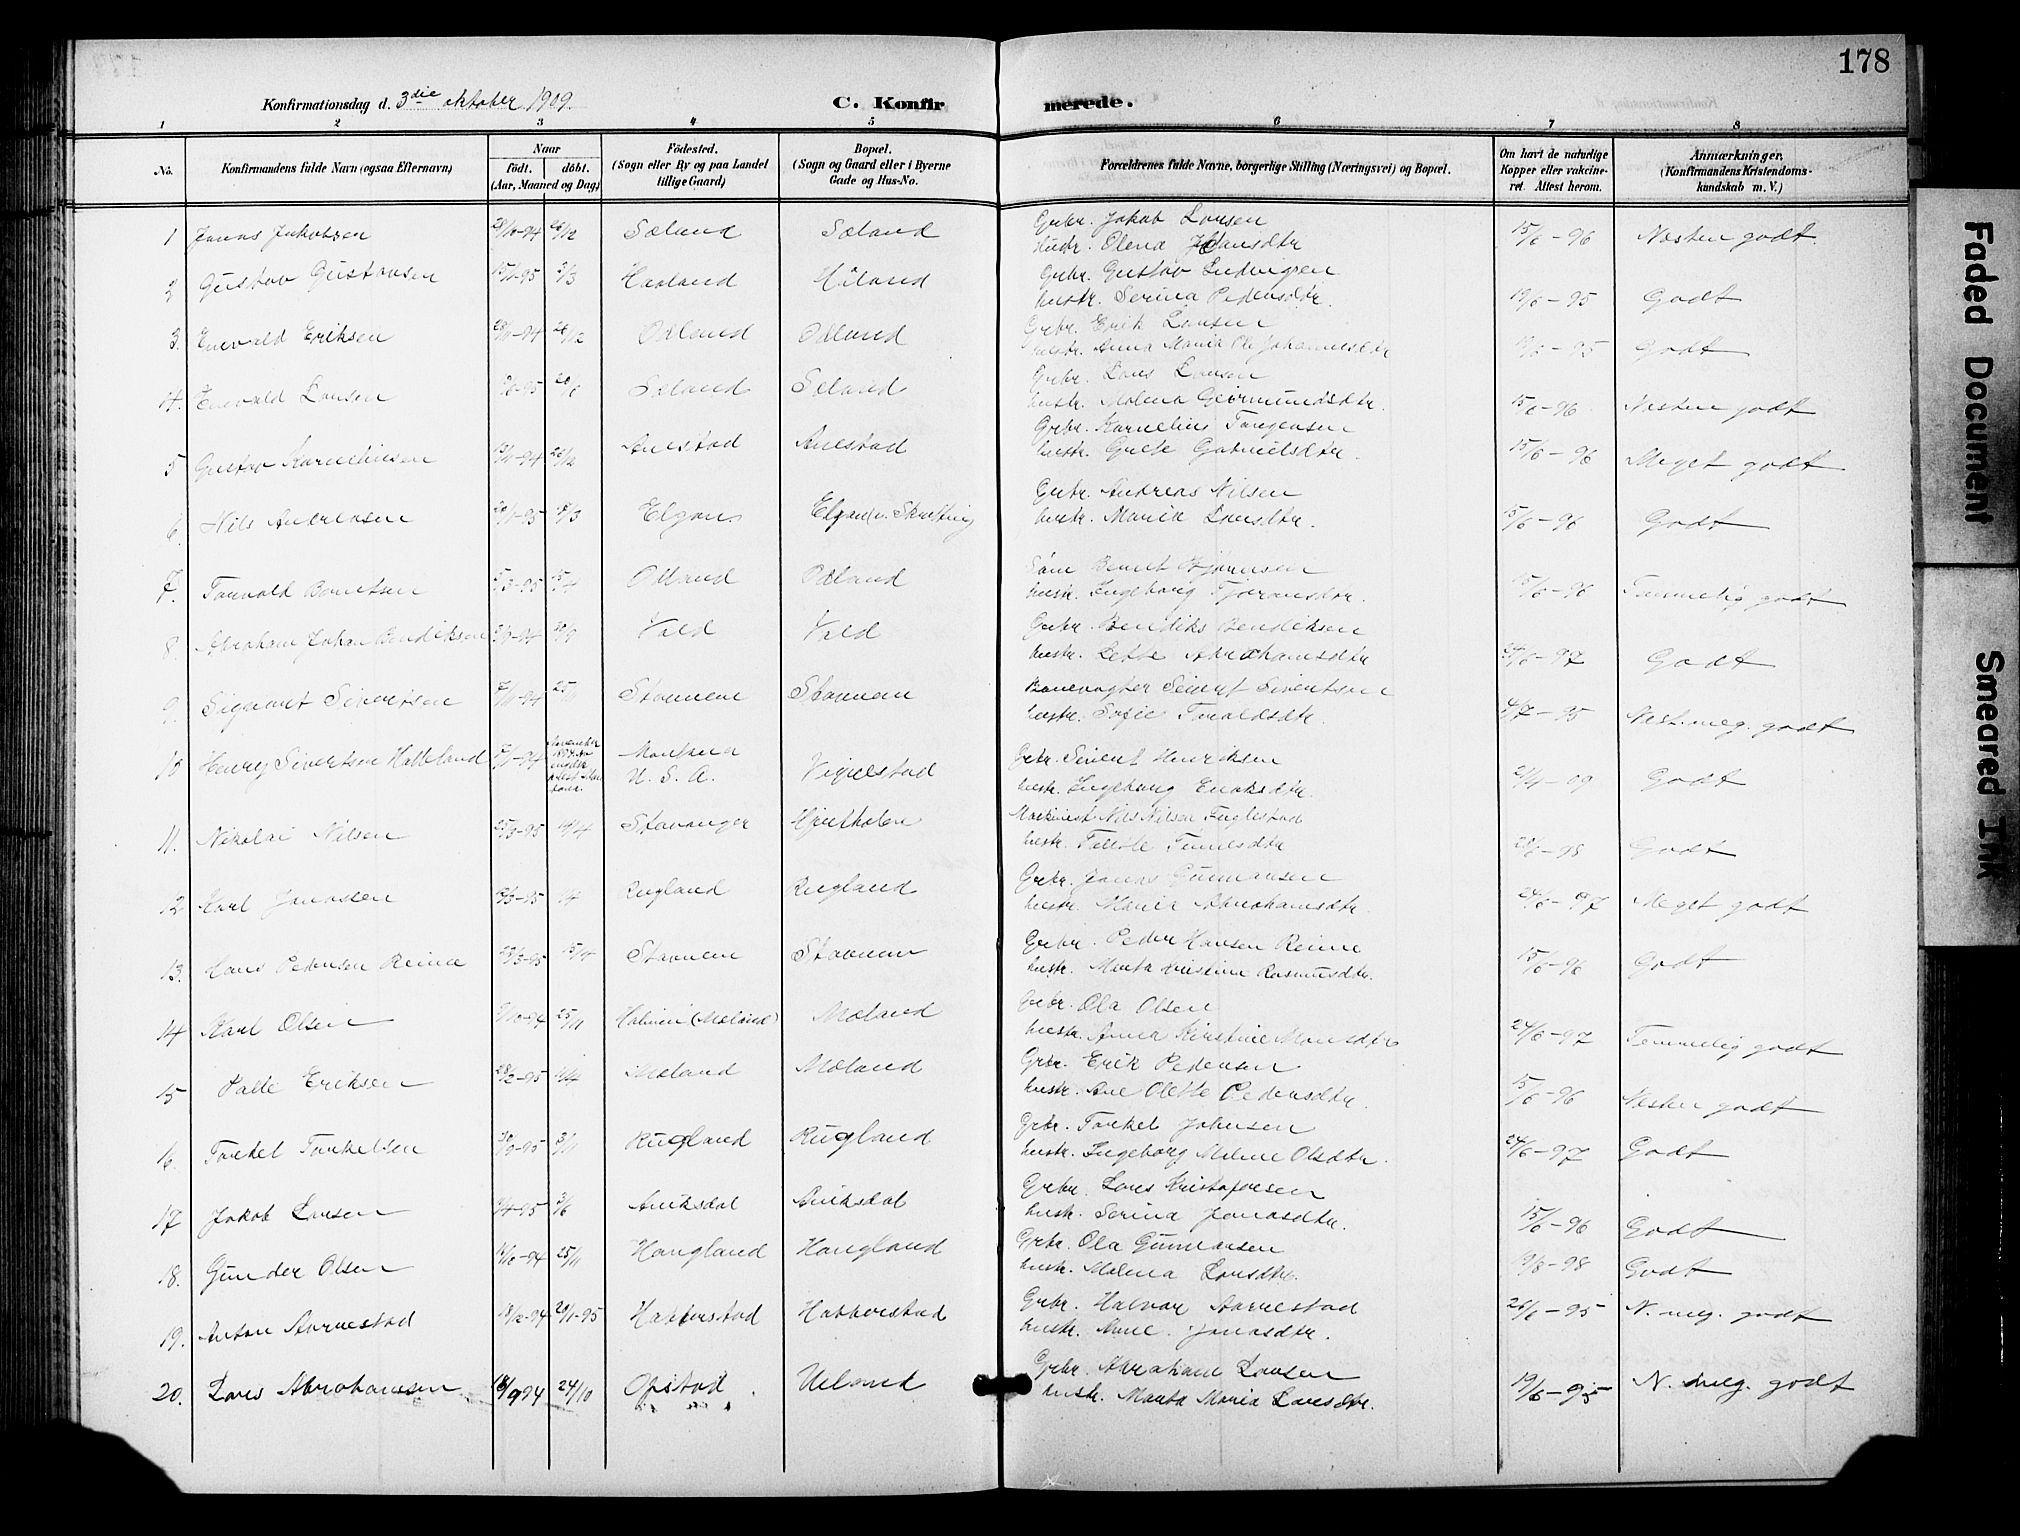 178
Konfirmationsdag d. 3die oktober 1909.
C. Konfirmerede.
1 2 3 4 5 6 7 8
No.
Konfirmandens fulde Navn (ogsaa Efternavn)
Naar födt. döbt. (Aar, Maaned og Dag)
Födested. (Sogn eller By og paa Landet tillige Gaard)
Bopæl. (Sogn og Gaard eller i Byerne Gade og Hus-No.
Forældrenes fulde Navne, borgerlige Stilling (Næringsvei) og Bopæl.
Om havt de naturlige Kopper eller vakcineret. Attest herom.
Anmærkninger. (Konfirmandens Kristendomskundskab m. V.)
1 Jonas Jakobsen 26/12 Sæland Sæland Grbr. Jakob Larsen hustr. Olena 15/6-96 Næsten godt.
2 Gustav Gustavsen 3/3 Haaland Håland Grbr. Gustav Ludvigsen hustr. Serina Pedersdtr. 19/6-95 Godt
3. Enevald Eriksen 26/12 Ødland Ødland Grbr. Erik Larsen hustr. Anna Maria Johannesdtr Godt
4. Enevald Larsen Sæland Sæland Grbr. Lars Larsen hustr. Malena Geirmundsdtr. 15/6-96 Næsten godt
5 Gustav Korneliusen 26/12 Anestad Anestad Grbr. Kornelius Torgersen hustr. Grete Gabrielsdtr. 15/6-96 Meget godt
6. Nils Andreasen Elgan Grbr. Andreas Nilsen hustr. Maria Larsdtr. 15/6-96 Godt
7. Torvald Berntsen 5/3-95 15/4 Ødland Ødland Bernt Bjørnsen hustr. Ingeborg 15/6-96 Temmelig godt
8. Abraham Johan Bendiksen 30/9 Vold Vold Grbr. Bendiks Bendiksen hustr. Lette Abrahamsdtr 24/6-97 Godt
9. Sigvart Sivertsen 25/11 Stavnem Stavnem Banevogter Sivert Sivertsen hustr. Sofie Toraldsdtr. Næst. meg. godt
10 Henry Sivertsen Helleland Montana U. S. A. Vigrestad Grbr. Sivert Henriksen hustr. Ingeborg Eriksdtr. Godt
11. Nikolai Nilsen 25/3-95 14/4 Stavanger Hjulholen Maskinist Nils Nilsen Fuglestad hustr. Godt
12 Karl Jonassen Rugland Rugland Grbr. Jonas Gunnarsen hustr. Maria Abrahamsdtr 24/6-97 Meget godt
13. Hans Pedersen Reime 23/3-95 15/4 Stavnem Stavnem Grbr. Peder Hansen Reime hustr. Marta Kristine Rasmusdtr. 15/6-96 Godt
14 Karl Olsen 25/11 Holmen (Moland) Moland Grbr. Ola Olsen hustr. Anna Kirstine Monsdtr 24/6-97 Temmelig godt
15 Palle Eriksen 28/2-95 Moland Moland Grbr. Erik Pedersen hustr. Ane Olette Pedersdtr. 15/6-96 Næsten godt
16. Torkel Torkelsen Rugland Rugland Grbr. Torkel Johnsen hustr. Ingeborg Malene Olsdtr. 24/6-97 Godt
17 Jakob Larsen 3/6 Aniksdal Aniksdal Grbr. Lars Kristofersen hustr. Serina Jonasdtr. 15/6-96 Godt
18. Gunder Olsen 25/11 Haugland Haugland Grbr. Ola Gunnarsen hustr. Malena Larsdtr. 19/8-98 Godt
19. Anton Aarrestad 18/12-94 20/1-95 Habberstad Habberstad Grbr. Halvor Aarrestad hustr. Anne Jonasdtr. 26/6-95 N. meg. godt
20. Lars Abrahamsen 24/10 Opstad Ueland Grbr. Abraham Larsen hustr. Marta Maria Larsdtr. 19/6-95 N. meg. godt
Faded Document
Smeared Ink